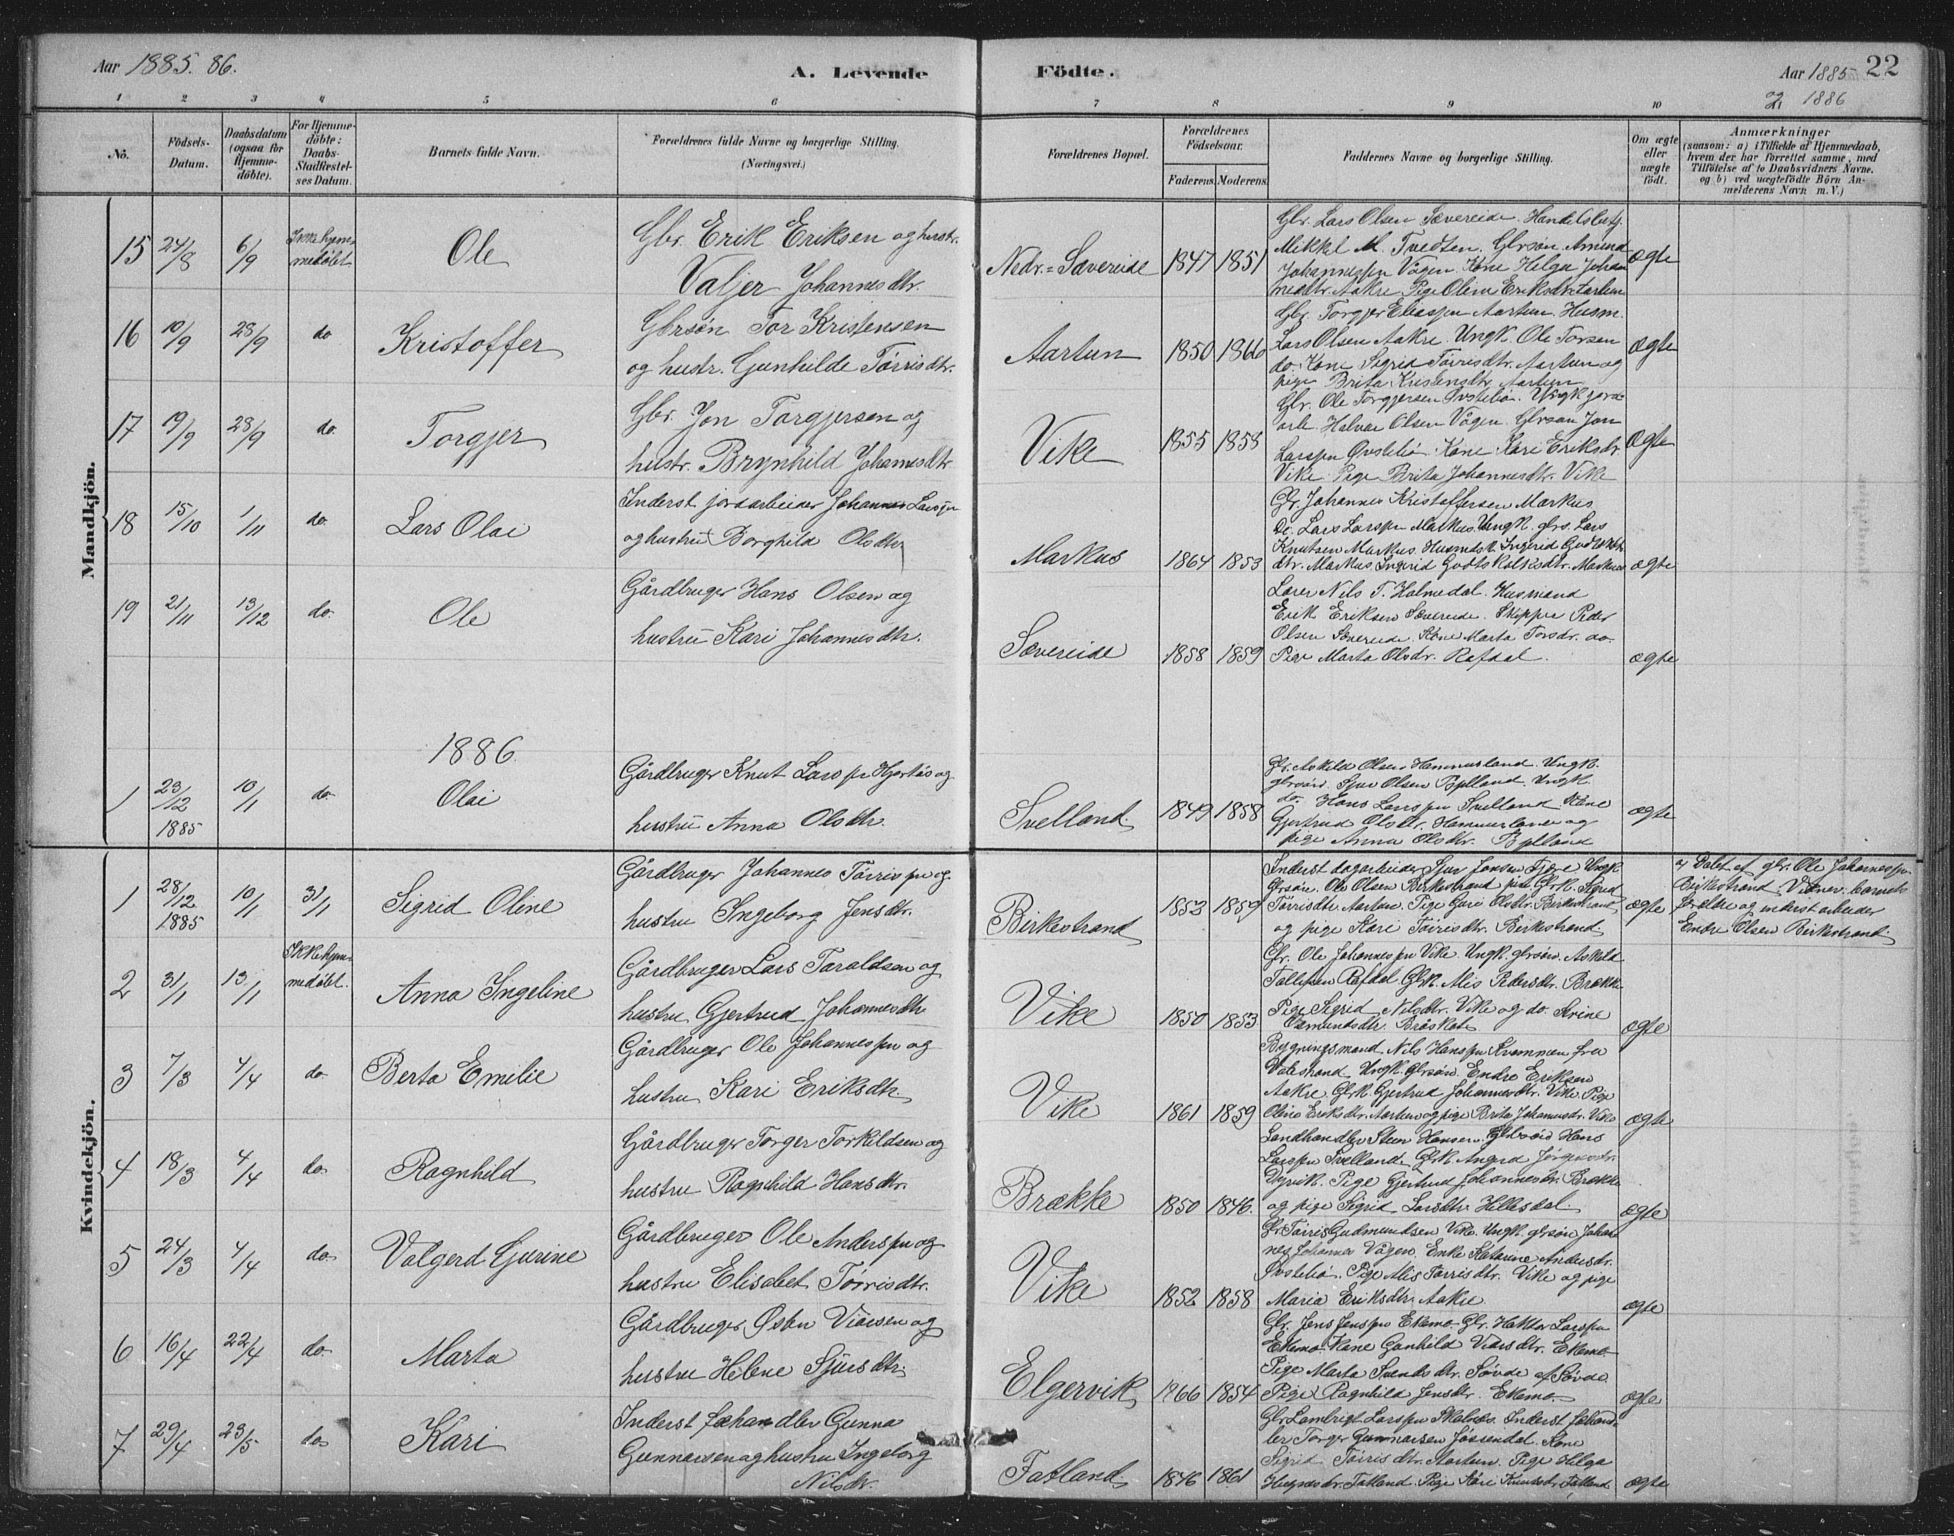 Aar 1885. 86.
A. Levende
Födte.
Aar 1885 22
og 1886
1 2 3 4 5 6 7 8 9 10
No.
Födsels-
Datum.
Daabsdatum
(ogsaa for
Hjemme-
döbte).
For Hjemme-
döbte:
Daabs-
Stadfæstel-
ses Datum.
Barnets fulde Navn.
Forældrenes fulde Navne og borgerlige Stilling.
(Næringsvei.)
Forældrenes Bopæl.
Forældrenes
Födselsaar.
Faderens. Moderens.
Faddernes Navne og borgerlige Stilling.
Om ægte
eller
uægte
født.
Anmærkninger
(saasom: a) i Tilfælde af Hjemmedaab,
hvem der har forrettet samme, med
Tilföielse af to Daabsvidners Navne.
og b) ved uægtefödte Börn An-
melderens Navn m. V.)
Mandkjön.
15 24/8 6/9 Ikke hjem-
medøbt
Ole
Gbr. Erik Eriksen og hustr.
Valjer Johannesdtr.
Nedr. Sævereide 1847 1851
Gbr. Lars Olsen Sævereide. Handelsbetj.
Mikkel M. Tvedten. Gbrsøn Amund
Johannespn Vågen. Kone Helga Johan
nesdtr. Aakre Pige Oline Eriksdtr. Aartun
ægte
16 10/9 28/9 do
Kristoffer
Gbrsøn Tor Kristensen
og hustr. Gunhilde Tørrisdtr.
Aartun 1850 1860
Gbr. Torgjer Eliaspn Aartun Husm.
Lars Olsen Aakre. Ungk. Ole Torsen
do. Kone Sigrid Tørrisdtr. Aartun og
pige Brita Kristensdtr. Aartun
ægte
17 19/9 28/9 do.
Torgjer
Gbr. Jon Torgjersen og
hustr. Brynhild Johannesdtr
Vike 1855 1858
Gbr. Ole Torgjersen Øvstebø. Ungk jord
arb. Halvor Olsen Vågen. Gbrsøn Jon
Larspn Øvstebø Kone Kari Eriksdtr
Vike. Pige Brita Johannesdtr. Vike
ægte
18 15/10 1/11 do.
Lars Olai
Inderst jordarbeider Johannes Larspn
og hustru Borghild Olsdtr
Markus 1864 1853
Gbr. Johannes Kristoffersen Markus.
Do. Lars Larspn Markus. Ungk. gbrs. Lars
Knutsen Markus. Ingrid
dtr. Markus Ingrid Godtskalksdtr. Markus
ægte
19 21/11 13/12 do.
Ole
Gårdbruger Hans Olsen og
hustru Kari Johannesdtr.
Sævereide 1858 1859
Lærer Nils T. Halmedal. Husmand
Erik Eriksen Sævereide. Skipper Peder
Olsen Sævereide. Kone Marta Torsdr. do.
Pige Marta Olsdr. Rafdal.
ægte
1886
1 23/12 1885 10/1 do
Olai
Gårdbruger Knut Larspn Hjortås og
hustru Anna Olsdtr.
Svelland. 1849 1858
Gbr. Askild Olsen Hammerland. Ungk.
gbrsøn. Sjur Olsen Bjelland. Ungk.
do. Hans Larspn Svelland Kone
Gjertrud Olsdtr. Hammerland og
pige Anna Olsdtr. Bjelland
ægte
Kvindekjön.
1 28/12 1885 10/1 31/1
Sigrid Oline
Gårdbruger Johannes Tørrispn og
hustru Ingeborg Jensdtr.
Birkestrand 1853 1859
Inderst dagarbeider Sjur Jonsen Fjære Ungk
Gbrsøn. Ole Olsen Birkestrand Sigrid
Tørrisdtr. Aartun. Pige Guri Olsdtr. Birkestrand
og pige Kari Tørrisdtr. Birkestrand.
ægte
a) Døbt af gbr. Ole Johannespn
Birkestrand. Vidner: barnets
forældre og inderst arbeider
Endre Olsen Birkestrand.
2 31/1 13/1 Ikke hjem-
medøbt.
Anna Ingeline
Gårdbruger Lars Taraldsen og
hustru Gjertrud Johannesdtr
Vike 1850 1853
Gbr. Ole Johannespn Vike. Ungk. gbrsøn. Askild
Tollefsen Rafdal Gbrk. Alis Pedersdtr. Brække
Pige Sigrid Nilsdtr. Vike og do. Stine
Osmundsdtr.
ægte
3 7/3 4/4 do.
Berta Emilie
Gårdbruger Ole Johannespn og
hustru Kari Eriksdtr.
Vike 1861 1859
Bygningsmand Nils Hanspn fra
Ungk. Gbrsøn. Endre Eriksen
Aakre Gbrk. Gjertrud Johannesdtr. Vike. Pige
Oline Eriksdtr. Aartun og pige Brita Johannesdtr. Vike
ægte
4 18/3 4/4 do
Ragnhild
Gårdbruger Torger Torkildsen og
hustru Ragnhild Hansdtr.
Brække 1850 1846.
Landhandler Steen Hansen. Gbrsøn Hans
Larspn Svelland. Gbrk. Angerd
Dyrik. Pige Gjertrud Johannesdtr. Brække
og pige Sigrid Larsdtr. Hillesdal.
ægte
5 24/3 4/4 do
Valgerd Gurine
Gårdbruger Ole Anderspn og
hustru Elisabet Tørrisdtr.
Vike 1852 1858
Gbr. Tørris Gudmundsen Vike. Ungk. gbrsøn Johan
nes Johannes Vågen. Enke Katarine Andersdtr.
Øvstebø. Pige Alis Tørrisdtr. Vike og pige
Maria Eriksdtr. Aakre.
ægte
6 16/4 22/4 do.
Marta
Gårdbruger Østen Viksen og
hustru Helene Sjursdtr.
Elgervik 1866 1854
Gbr. Jens Jenspn Ekemo. Gbr. Haktor Larspn
Ekemo. Kone Gunhild Ekemo
Pige Marta Svendsdtr. Søvde af Søvde
Pige Ragnhild Jensdtr. Ekemo.
ægte
7 29/4 23/5 do
Kari
Inderst fæhandler Gunnar
Gunnarsen og hustru Ingeborg
Nilsdr.
Fatland. 1846 1861
Gbr. Lambrigt Larspn Skålnæs. Inderst fæhand-
ler Torger Gunnarsen Jøssendal. Kone
Sigrid Tørrisdtr. Aartun. Pige Helga
Hugnesdtr. Fatland. Pige Kari Knutsdtr Fatland
ægte